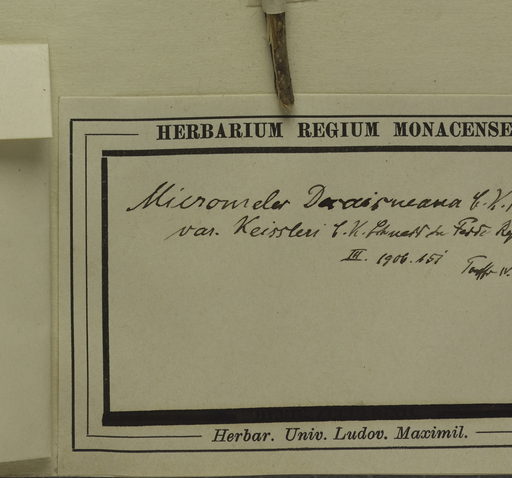 HERBARIUM REGIUM MONACENSE
Micromeles Decaisneana C. K.
var. Keissleri C. K. Schneid. in Fedde Rep
III. 1906. 151
Herbar. Univ. Ludov. Maximil.